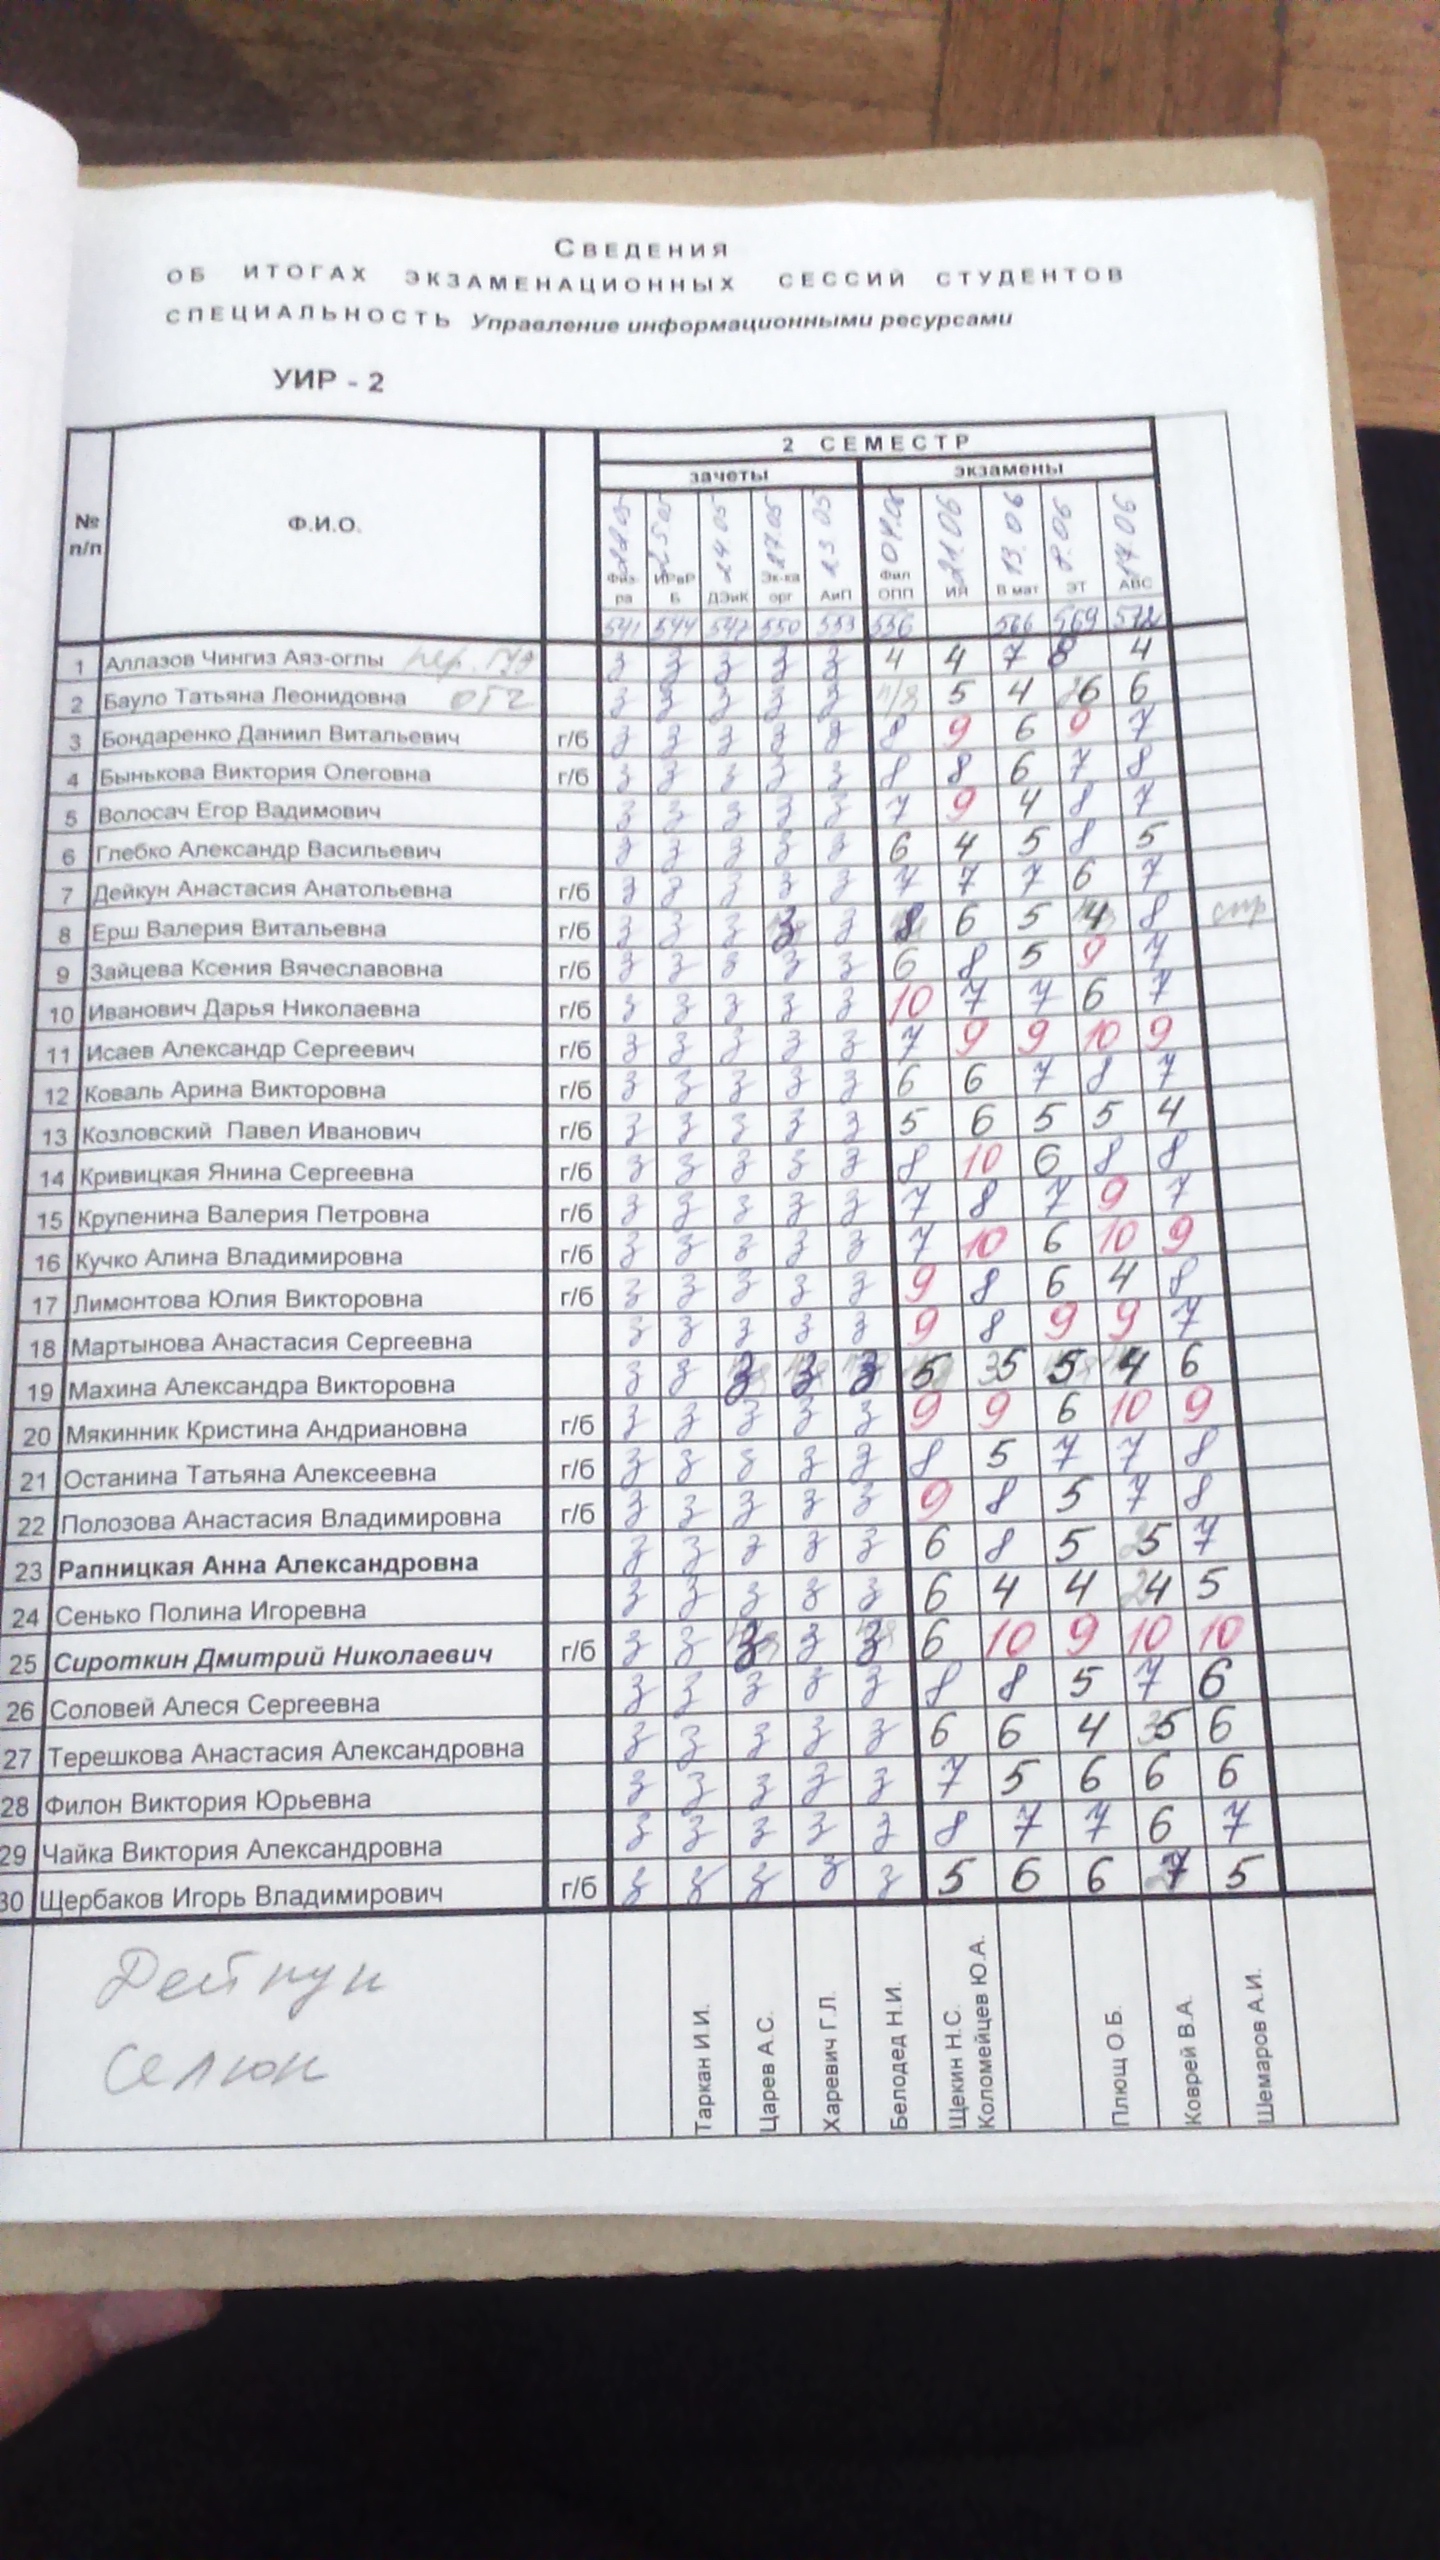 Сведения
об итогах экзаменационных сессий студентов
специальность Управление информационными ресурсами
УИР - 2
№ п/п Ф.И.О. 2 СЕМЕСТР
зачеты экзамены
25.05 24.05 27.05 23.05 04.06 21.06 13.06 8.06 14.06
Физ-ра ИРвРБ ДЭиК Эк-ка орг АиП Фил ОПП ИЯ В мат ЭТ АВС
541 544 547 550 553 556 566 569 572
1 Аллазов Чингиз Аяз-оглы з з з з з 4 4 7 8 4
2 Бауло Татьяна Леонидовна з з з з з н/з 5 4 6 6
3 Бондаренко Даниил Витальевич г/б з з з з з 8 9 6 9 7
4 Бынькова Виктория Олеговна г/б з з з з з 8 8 6 7 8
5 Волосач Егор Вадимович з з з з з 7 9 4 8 7
6 Глебко Александр Васильевич з з з з з 6 4 5 8 5
7 Дейкун Анастасия Анатольевна г/б з з з з з 7 7 7 6 7
8 Ерш Валерия Витальевна г/б з з з з з 8 6 5 4 8
9 Зайцева Ксения Вячеславовна г/б з з з з з 6 8 5 9 7
10 Иванович Дарья Николаевна г/б з з з з з 10 7 7 6 7
11 Исаев Александр Сергеевич г/б з з з з з 7 9 9 10 9
12 Коваль Арина Викторовна г/б з з з з з 6 6 7 8 7
13 Козловский Павел Иванович г/б з з з з з 5 6 5 5 4
14 Кривицкая Янина Сергеевна г/б з з з з з 8 10 6 8 8
15 Крупенина Валерия Петровна г/б з з з з з 7 8 7 9 7
16 Кучко Алина Владимировна г/б з з з з з 7 10 6 10 9
17 Лимонтова Юлия Викторовна г/б з з з з з 9 8 6 4 8
18 Мартынова Анастасия Сергеевна з з з з з 9 8 9 9 7
19 Махина Александра Викторовна з з з з з 5 35 5 4 6
20 Мякинник Кристина Андриановна г/б з з з з з 9 9 6 10 9
21 Останина Татьяна Алексеевна г/б з з з з з 8 5 7 7 8
22 Полозова Анастасия Владимировна г/б з з з з з 9 8 5 7 8
23 Рапницкая Анна Александровна з з з з з 6 8 5 5 7
24 Сенько Полина Игоревна з з з з з 6 4 4 24 5
25 Сироткин Дмитрий Николаевич г/б з з з з з 6 10 9 10 10
26 Соловей Алеся Сергеевна з з з з з 8 8 5 7 6
27 Терешкова Анастасия Александровна з з з з з 6 6 4 35 6
28 Филон Виктория Юрьевна з з з з з 7 5 6 6 6
29 Чайка Виктория Александровна з з з з з 8 7 7 6 7
30 Щербаков Игорь Владимирович г/б з з з з з 5 6 6 7 5
Дейкун
Селюн
Таркан И.И.
Царев А.С.
Харевич Г.Л.
Белодед Н.И.
Щекин Н.С.
Коломейцев Ю.А.
Плющ О.Б.
Коврей В.А.
Шемаров А.И.